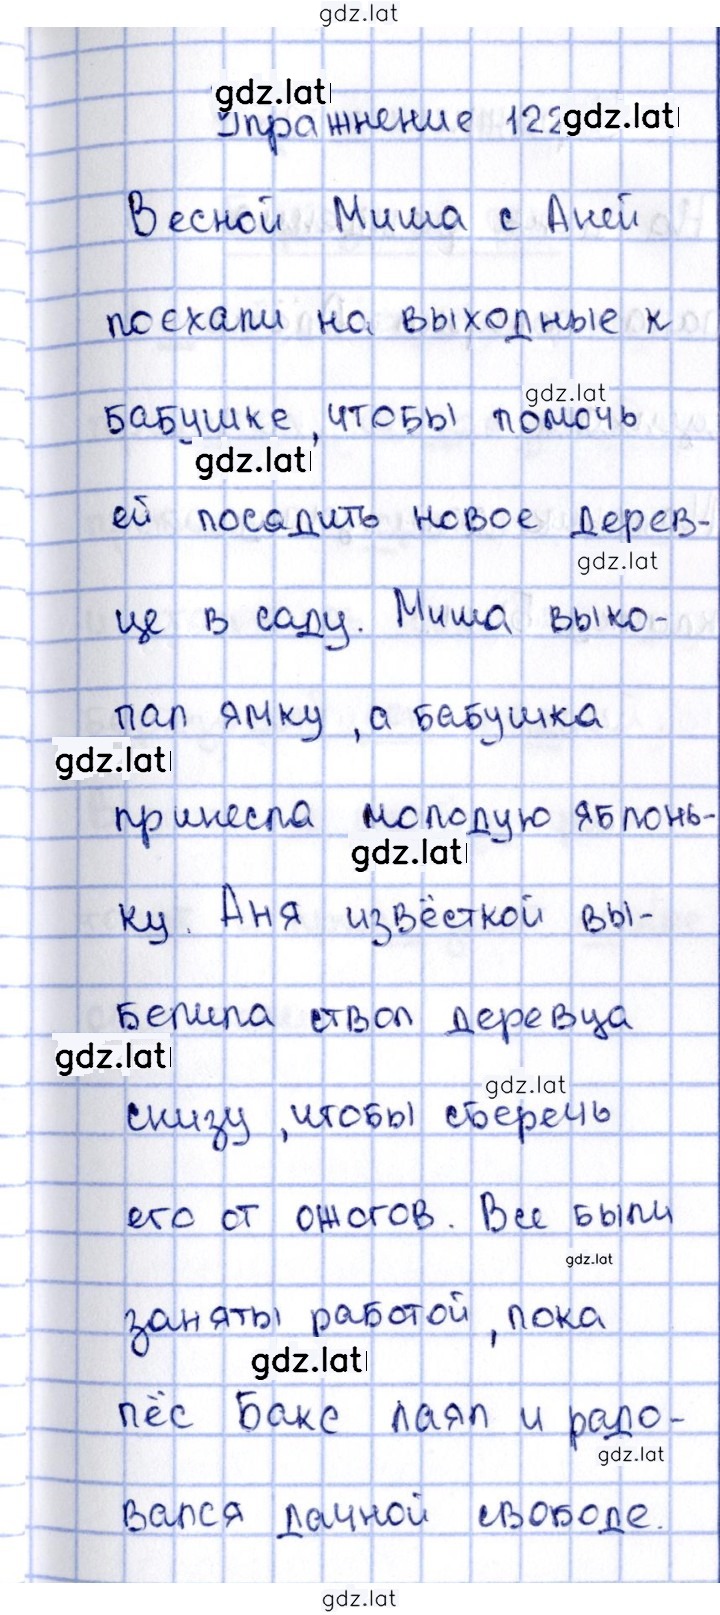 gdz.lat
gdz.lat
Упражнение 122 gdz.lat
Весной Миша с Аней
поехали на выходные к
gdz.lat
бабушке, чтобы помочь
gdz.lat
ей посадить новое дерев-
gdz.lat
це в саду. Миша выко-
пал ямку, а бабушка
gdz.lat
принесла молодую яблонь-
gdz.lat
ку. Аня извёсткой вы-
белила ствол деревца
gdz.lat
gdz.lat
снизу, чтобы сберечь
его от ожогов. Все были
gdz.lat
заняты работой, пока
gdz.lat
пёс Бакс лаял и радо-
gdz.lat
вался дачной свободе.
gdz.lat